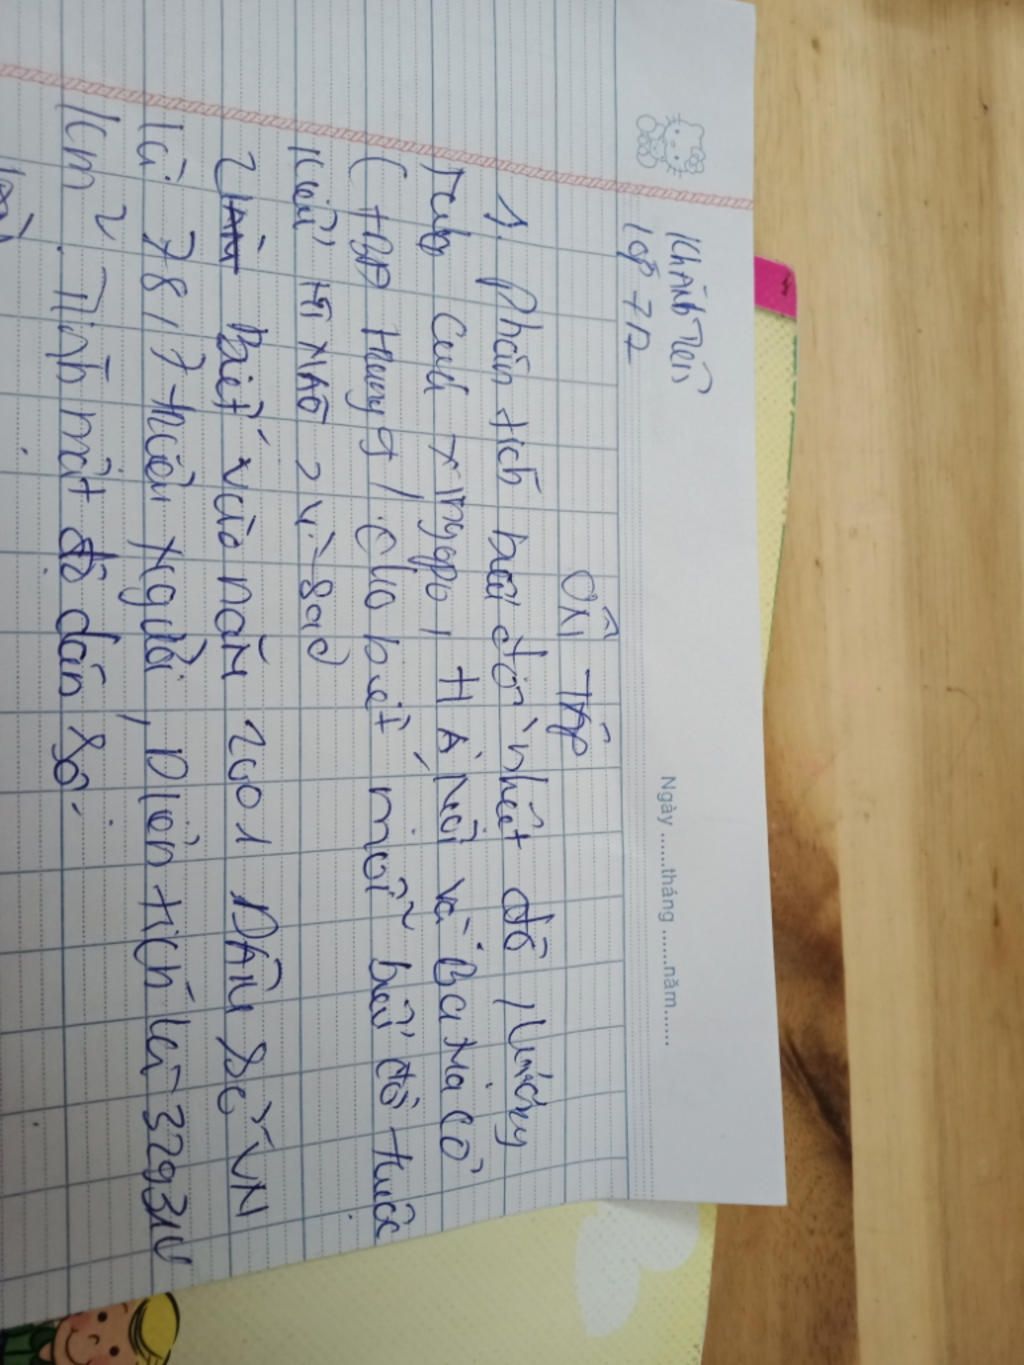 Khánh Tiên
Lớp 7A2
Ngày ......tháng ......năm......
ôn Tập
1. Phân tích biểu đồ nhiệt độ, lượng
mưa của Xingapo, Hà Nội và
( trang ). Cho biết mỗi biểu đồ thuộc
kiểu khí hậu nào? Vì sao
2. Biết vào năm 2001 Dân số VN
là 78,7 triệu người, Diện tích là 329314
km². Tính mật độ dân số.